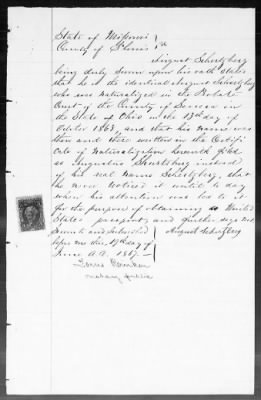 State of Missouri
County of St Louis } ss
August Schertzberg
being duly sworn upon his oath states
that he is the identical August Schertzberg
who was naturalized in the Probate
Court of the County of Seneca in
the State of Ohio on the 13th day of
October 1863, and that his name was
then and there written in the Certifi
cate of Naturalization herewith filed
as Augustus instead
of his real name Schertzberg, that
he never noticed it until to day
when his attention was led to it
for the purpose of obtaining a United
States passport and further says not
Sworn to and subscribed
before me this 19th day of
June A.D. 1867.
August
Louis
Notary Public